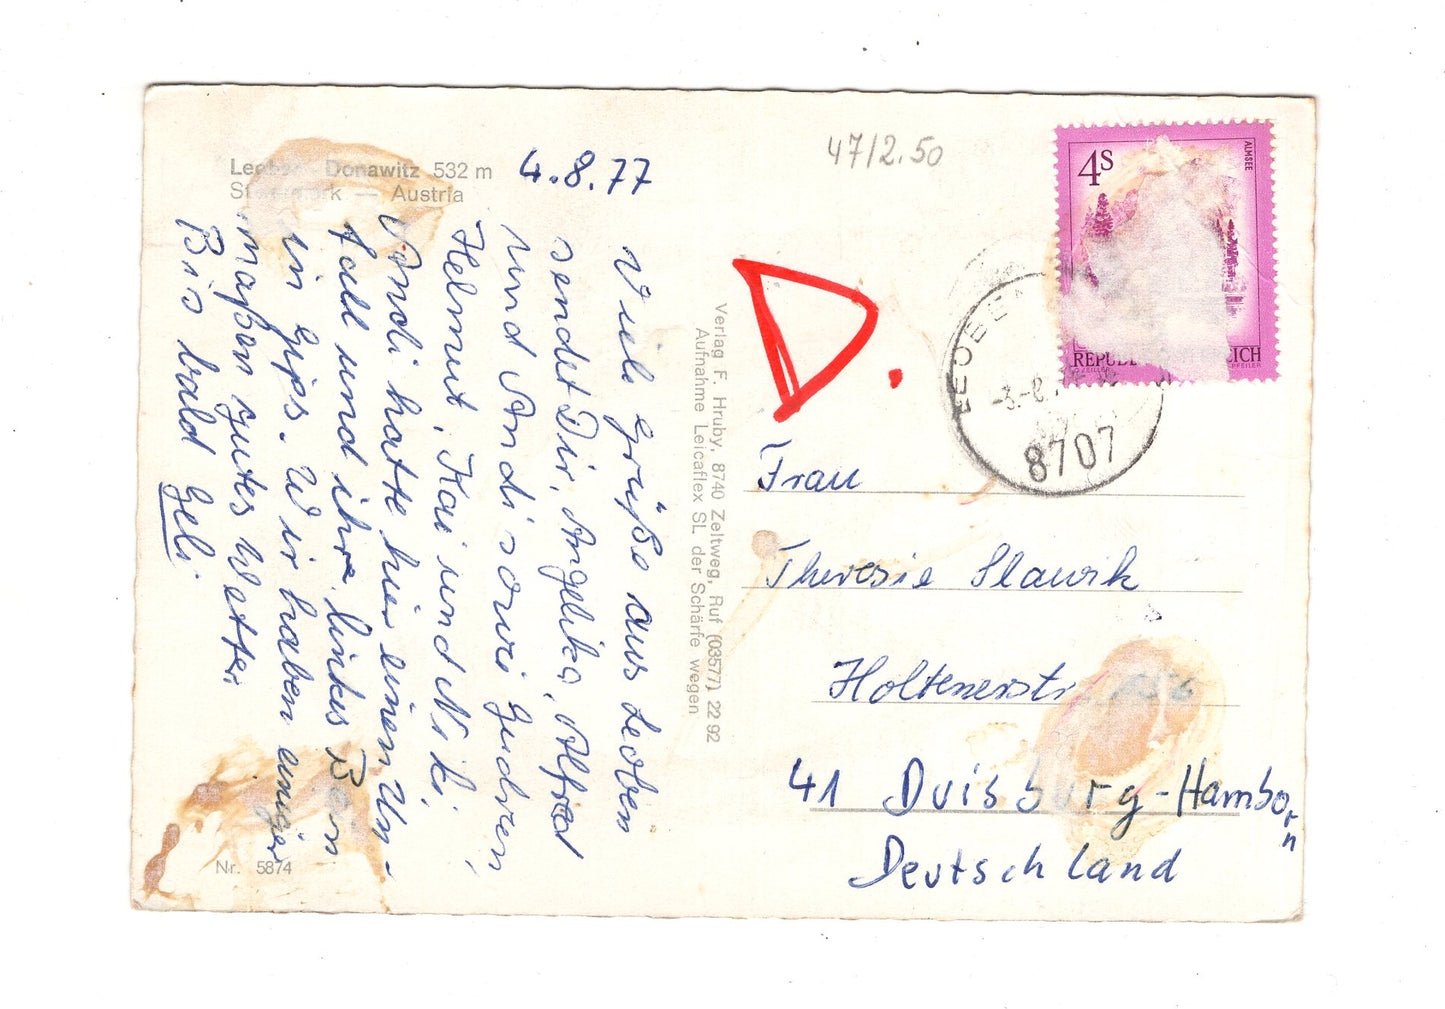 Leoben - Donawitz 532 m
Steiermark — Austria
4.8.77
Viele Grüße aus Leoben
sendet Dir, Angelika, Alfred
und Andi sowie Gudrun,
Helmut, Kai und Niki.
Andi hatte hier einen Un-
fall und ihr linkes Bein
in Gips. Wir haben einiger
maßen gutes Wetter.
Bis bald Geli
Nr. 5874
Verlag F. Hruby, 8740 Zeltweg, Ruf (03577) 22 92
Aufnahme Leicaflex SL der Schärfe wegen
47/2.50
D.
4 S
ALMSEE
REPUBLIK ÖSTERREICH
LEOBEN
-3.-8.
8707
Frau
Theresie Slawik
Holtenerstr
41 Duisburg-Hamborn
Deutschland